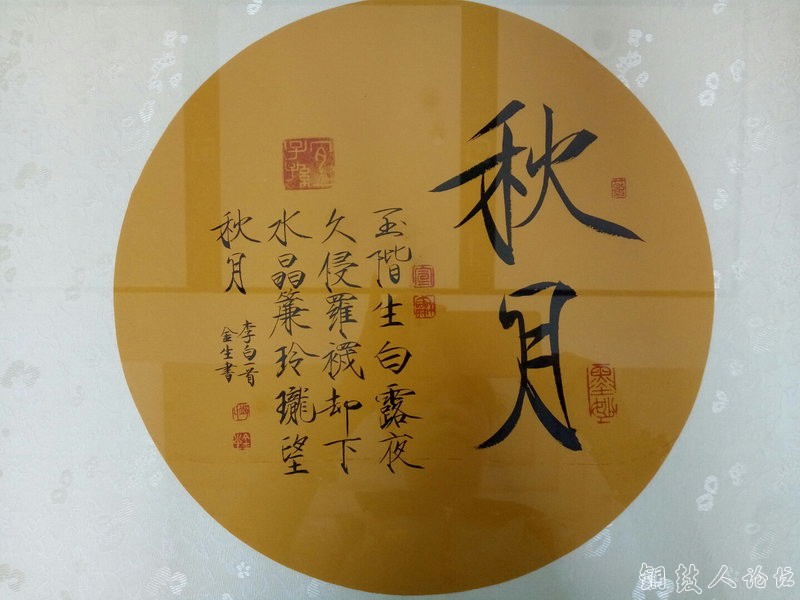 秋月
墨妙
玉階生白露夜
久侵羅襪却下
水晶簾玲瓏望
秋月
李白一首
金生書
铜鼓人论坛